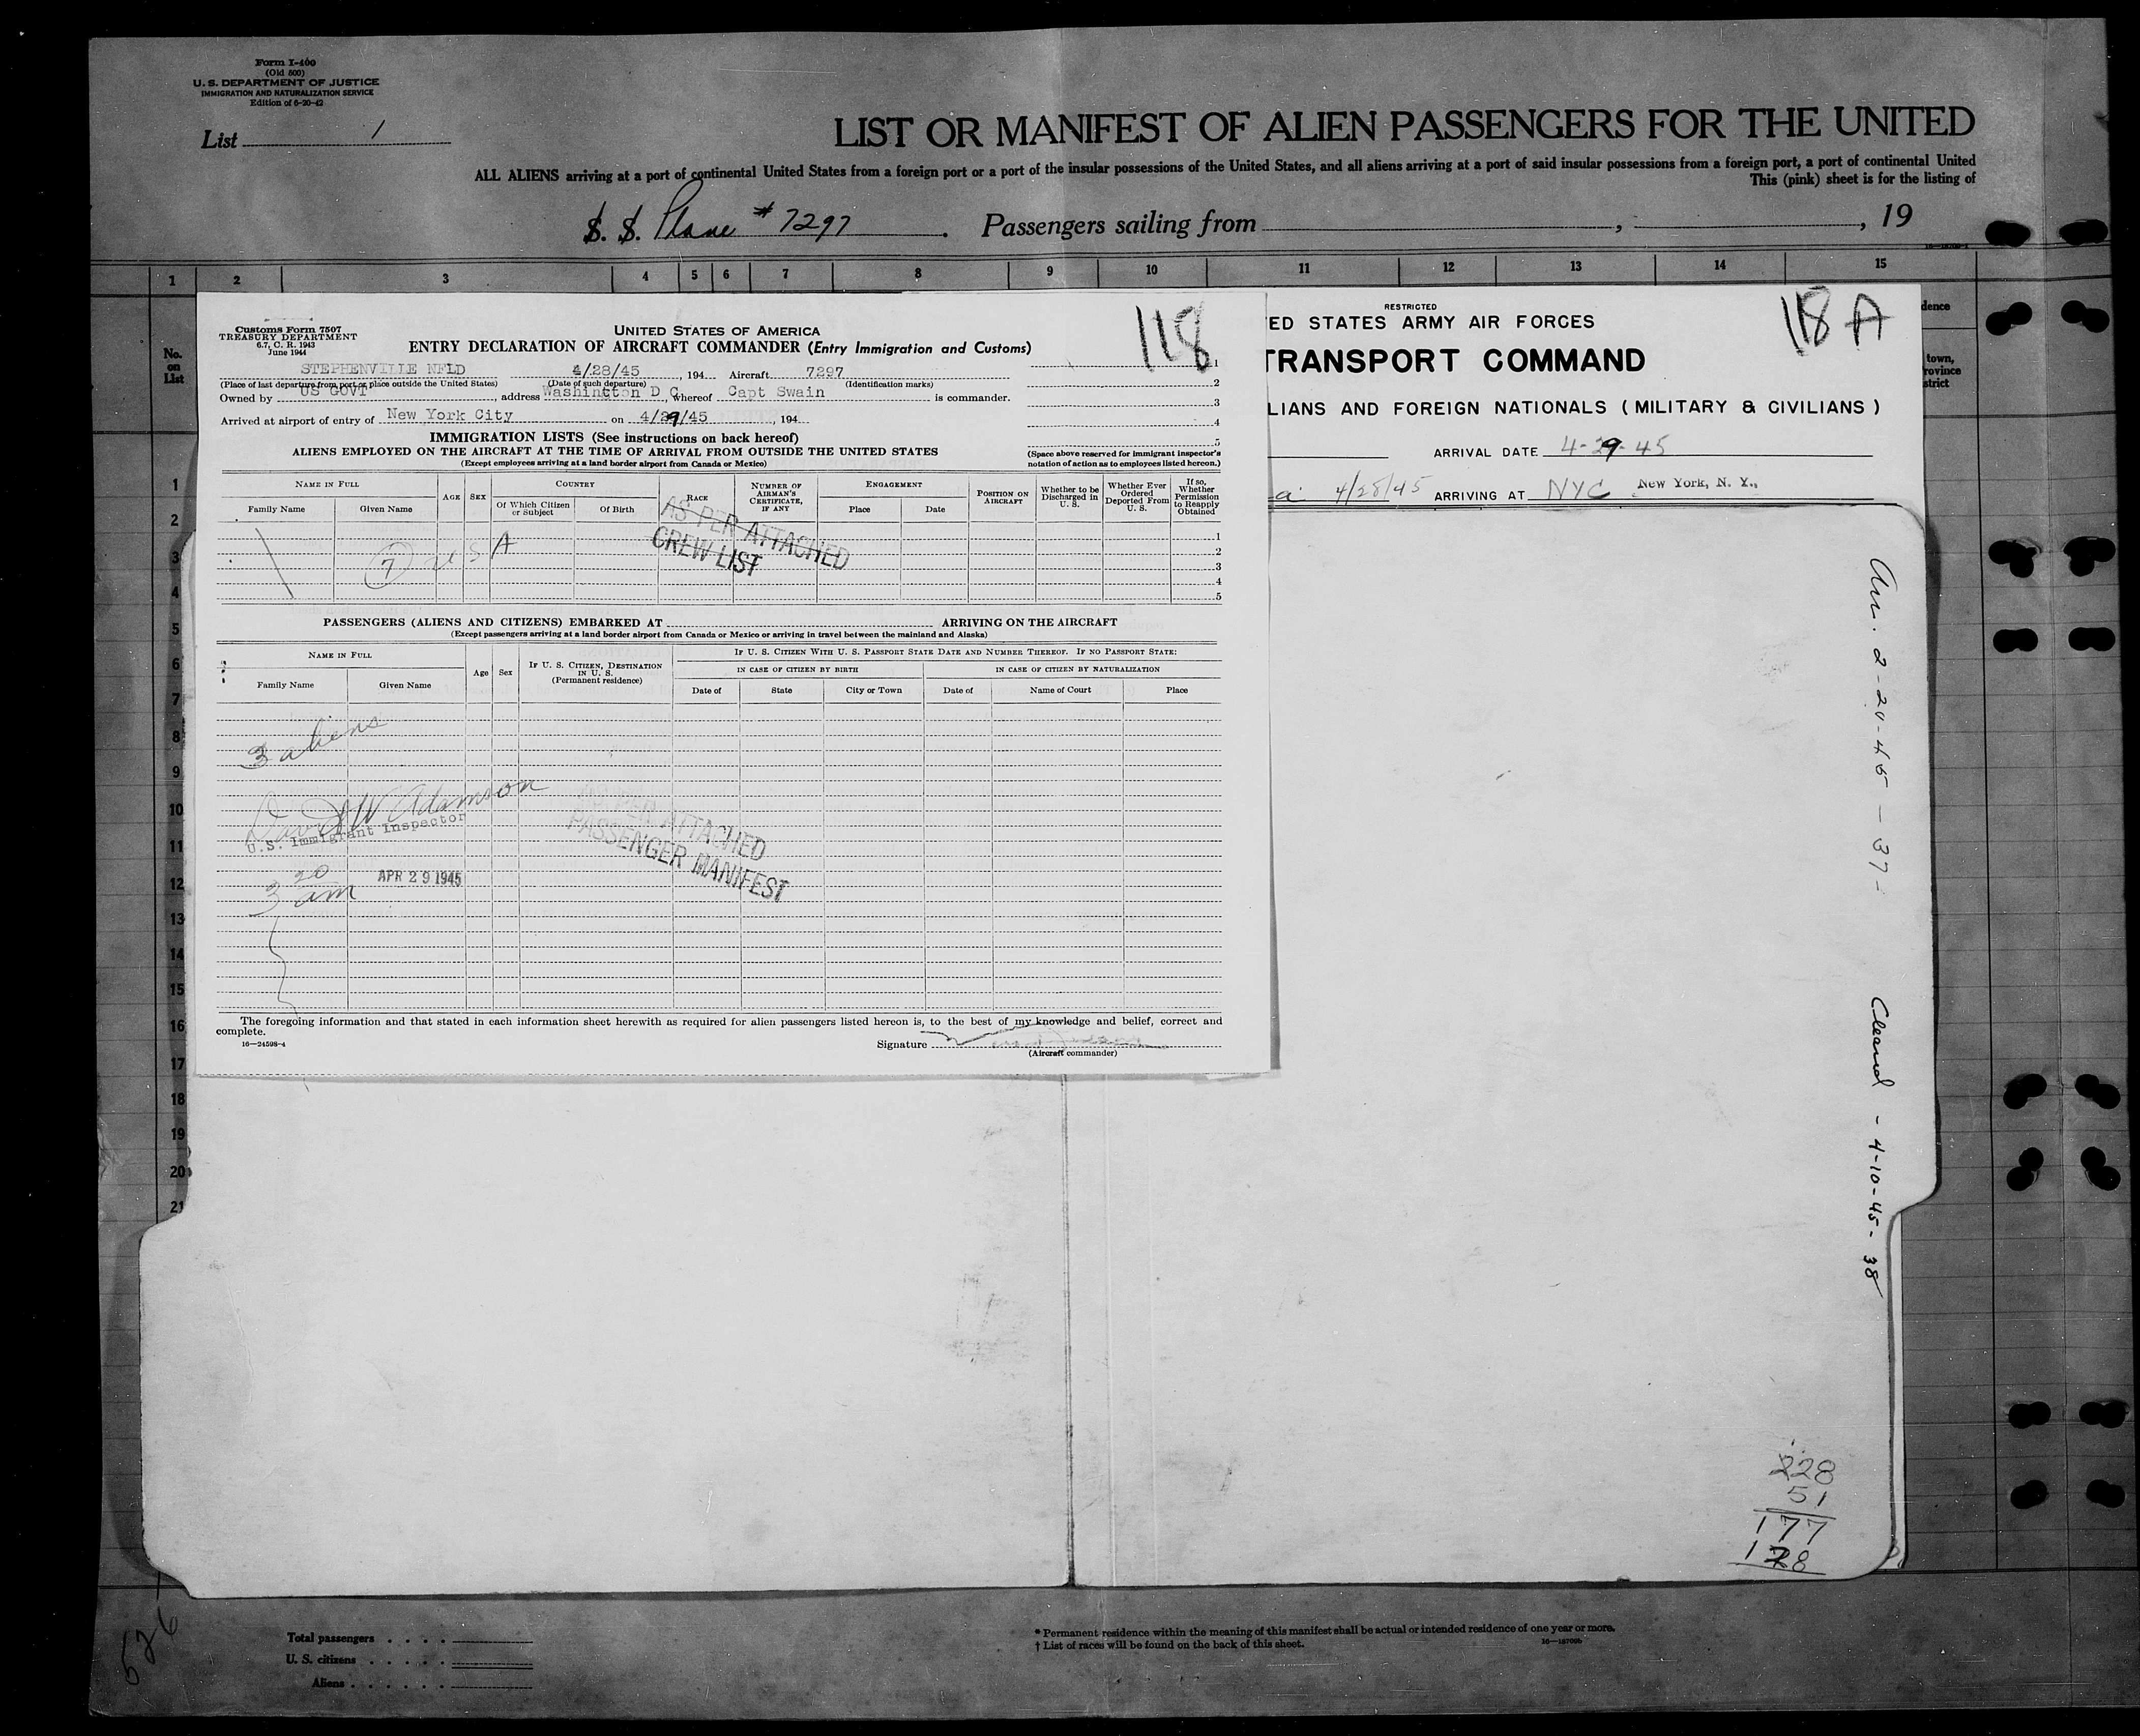 Form I-400
(Old 500)
U. S. DEPARTMENT OF JUSTICE
IMMIGRATION AND NATURALIZATION SERVICE
Edition of 6-20-42
List 1
LIST OR MANIFEST OF ALIEN PASSENGERS FOR THE UNITED
ALL ALIENS arriving at a port of continental United States from a foreign port or a port of the insular possessions of the United States, and all aliens arriving at a port of said insular possessions from a foreign port, a port of continental United
This (pink) sheet is for the listing of
S. S. Plane # 7297 . Passengers sailing from , , 19
1 2 3 4 5 6 7 8 9 10 11 12 13 14 15
No. on List
1
2
3
4
5
6
7
8
9
10
11
12
13
14
15
16
17
18
19
20
21
Customs Form 7507
TREASURY DEPARTMENT
6.7, C. R. 1943
June 1944
118
UNITED STATES OF AMERICA
ENTRY DECLARATION OF AIRCRAFT COMMANDER (Entry Immigration and Customs)
STEPHENVILLE NFLD 4/28/45 , 194 Aircraft 7297
(Place of last departure from port or place outside the United States) (Date of such departure) (Identification marks)
Owned by US GOVT , address Washington D C , whereof Capt Swain is commander.
Arrived at airport of entry of New York City on 4/29/45 , 194
1
2
3
4
5
IMMIGRATION LISTS (See instructions on back hereof)
ALIENS EMPLOYED ON THE AIRCRAFT AT THE TIME OF ARRIVAL FROM OUTSIDE THE UNITED STATES
(Except employees arriving at a land border airport from Canada or Mexico)
(Space above reserved for immigrant inspector's notation of action as to employees listed hereon.)
NAME IN FULL
Family Name Given Name
AGE SEX
COUNTRY
Of Which Citizen or Subject Of Birth
RACE
NUMBER OF AIRMAN'S CERTIFICATE, IF ANY
ENGAGEMENT
Place Date
POSITION ON AIRCRAFT
Whether to be Discharged in U. S.
Whether Ever Ordered Deported From U. S.
If so, Whether Permission to Reapply Obtained
AS PER ATTACHED
CREW LIST
7 U S A
1
2
3
4
5
PASSENGERS (ALIENS AND CITIZENS) EMBARKED AT ARRIVING ON THE AIRCRAFT
(Except passengers arriving at a land border airport from Canada or Mexico or arriving in travel between the mainland and Alaska)
NAME IN FULL
Family Name Given Name
Age Sex
IF U. S. CITIZEN, DESTINATION IN U. S. (Permanent residence)
IF U. S. CITIZEN WITH U. S. PASSPORT STATE DATE AND NUMBER THEREOF. IF NO PASSPORT STATE:
IN CASE OF CITIZEN BY BIRTH IN CASE OF CITIZEN BY NATURALIZATION
Date of State City or Town Date of Name of Court Place
3 aliens
David W Adamson
U.S. Immigrant Inspector
AS PER ATTACHED
PASSENGER MANIFEST
3 20 am APR 29 1945
The foregoing information and that stated in each information sheet herewith as required for alien passengers listed hereon is, to the best of my knowledge and belief, correct and
complete.
16—24598-4
Signature
(Aircraft commander)
RESTRICTED
118 A
ED STATES ARMY AIR FORCES
TRANSPORT COMMAND
LIANS AND FOREIGN NATIONALS (MILITARY & CIVILIANS)
ARRIVAL DATE 4-29-45
4/28/45 ARRIVING AT NYC New York, N. Y.,
dence
town,
rovince
strict
Arr. 2-20-45 - 37-
Cleared - 4-10-45- 38
228
51
177
128
526
Total passengers
U. S. citizens
Aliens
* Permanent residence within the meaning of this manifest shall be actual or intended residence of one year or more.
† List of races will be found on the back of this sheet.